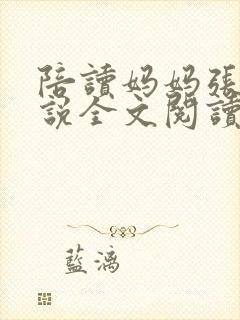 陪讀妈妈張
說全文閱讀
藍漓